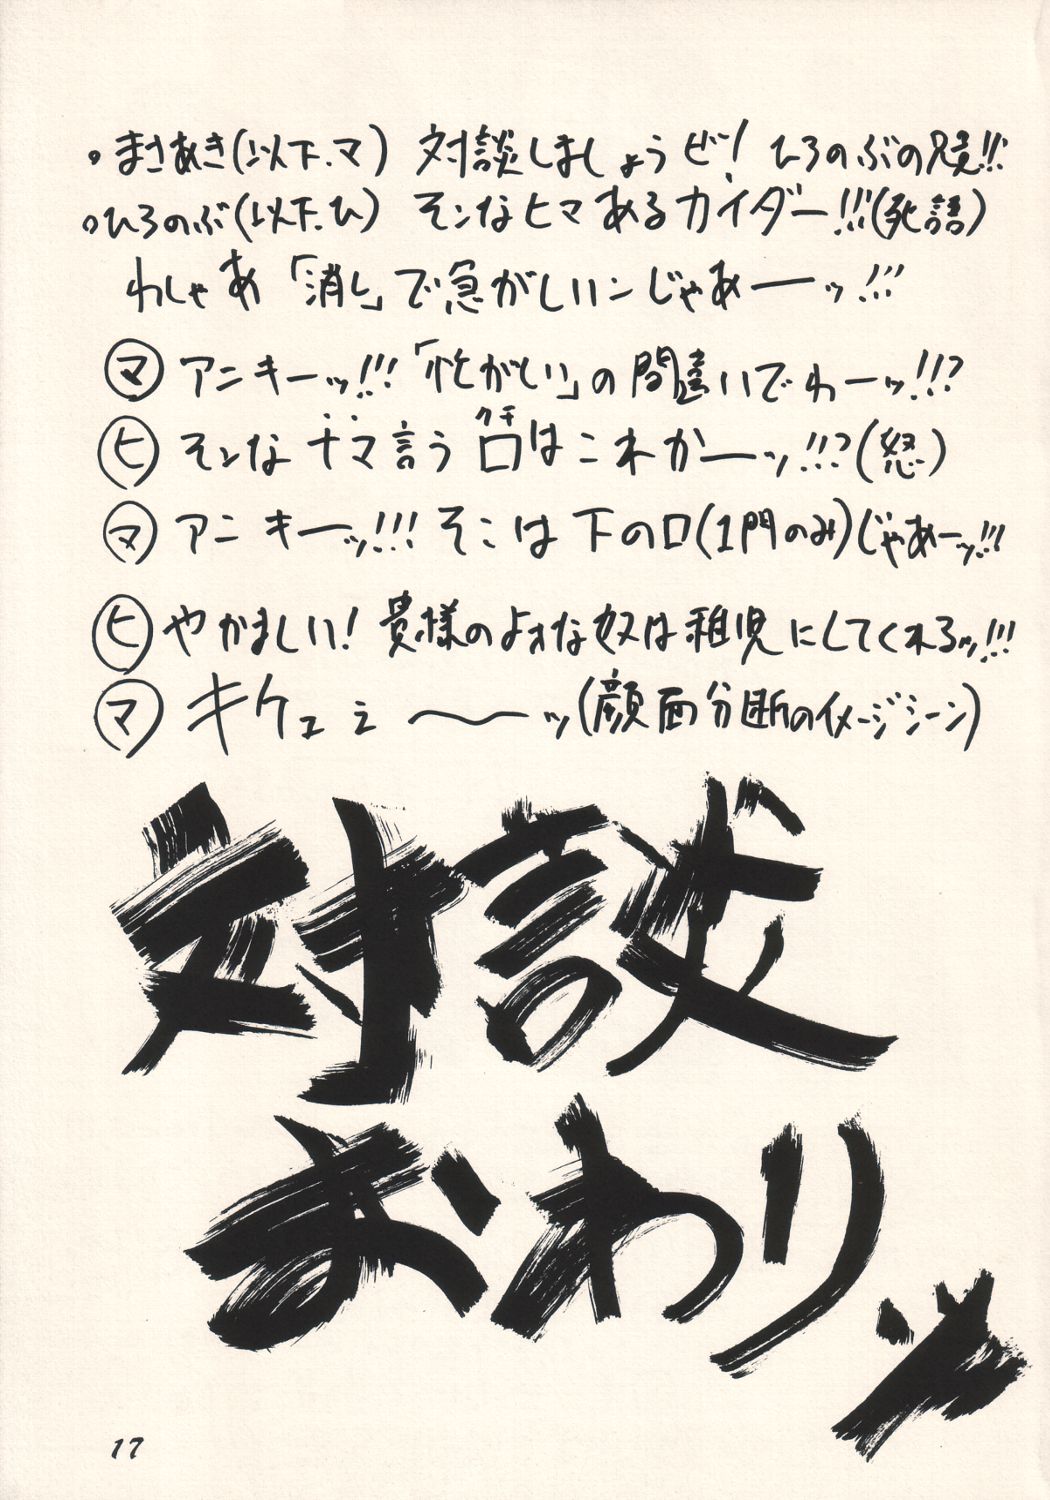 。まさあき(以下.マ) 対談しましょうぜ! ひろのぶの兄貴!!!
。ひろのぶ(以下.ひ) そンなヒマあるカイダー!!!(死語)
わしゃあ「消し」で急がしいンじゃあーッ!!!
㋮ アニキーッ!!!「忙がしい」の間違いでわーッ!!?
㋪ そンなナマ言う口はこれかーッ!!!?(怒)
クチ
㋮ アニキーッ!!!そこは下の口(1門のみ)じゃあーッ!!!
㋪ やかましい! 貴様のよォな奴は稚児にしてくれるッ!!!
㋮ キケェェ〜〜ッ(顔面分断のイメージシーン)
対談
おわりッ
17